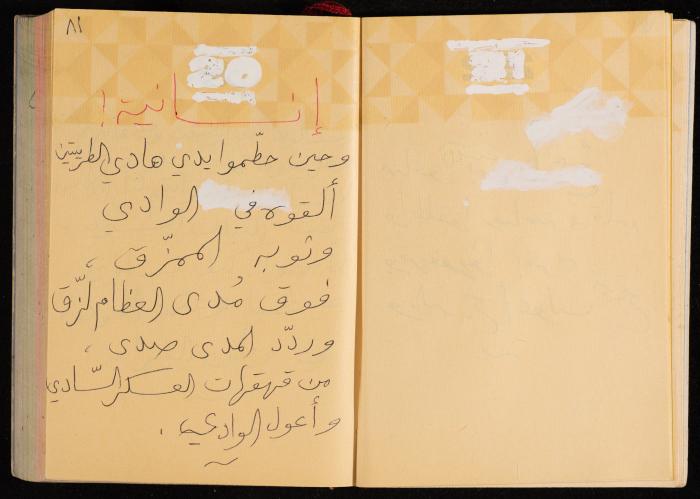 ٨١
إنسانية!
وحين حطّموا يدي هادي الطريتين
ألقوه في الوادي
وثوبه الممزّق ،
فوق مُدى العظام لزّق
وردّد المدى صدى ،
من قهقهات العسكر السّادي
وأعول الوادي .